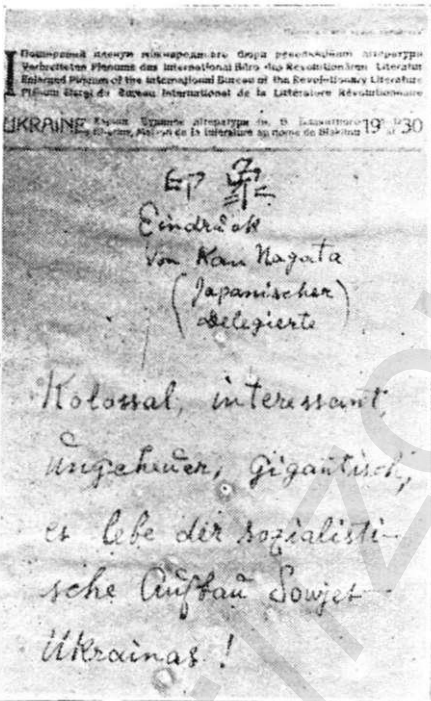 Поширений пленум міжнароднього бюра революційної літератури
Verbreitetes Plenum des International Büro der Revolutionären Literatur
Enlarged Plenum of the International Bureau of the Revolutionary Literature
Plénum élargi du Bureau International de la Littérature Révolutionnaire
UKRAINE Харків Будинок літератури ім. В. Блакитного 1930
Maison de la litérature au nome de Blakitny
印象
Eindrück
von Kan Nagata
(Japanischer
Delegierte)
Kolossal, interessant,
ungeheuer, gigantisch,
es lebe der sozialisti-
sche Aufbau Sowjet-
Ukrainas!